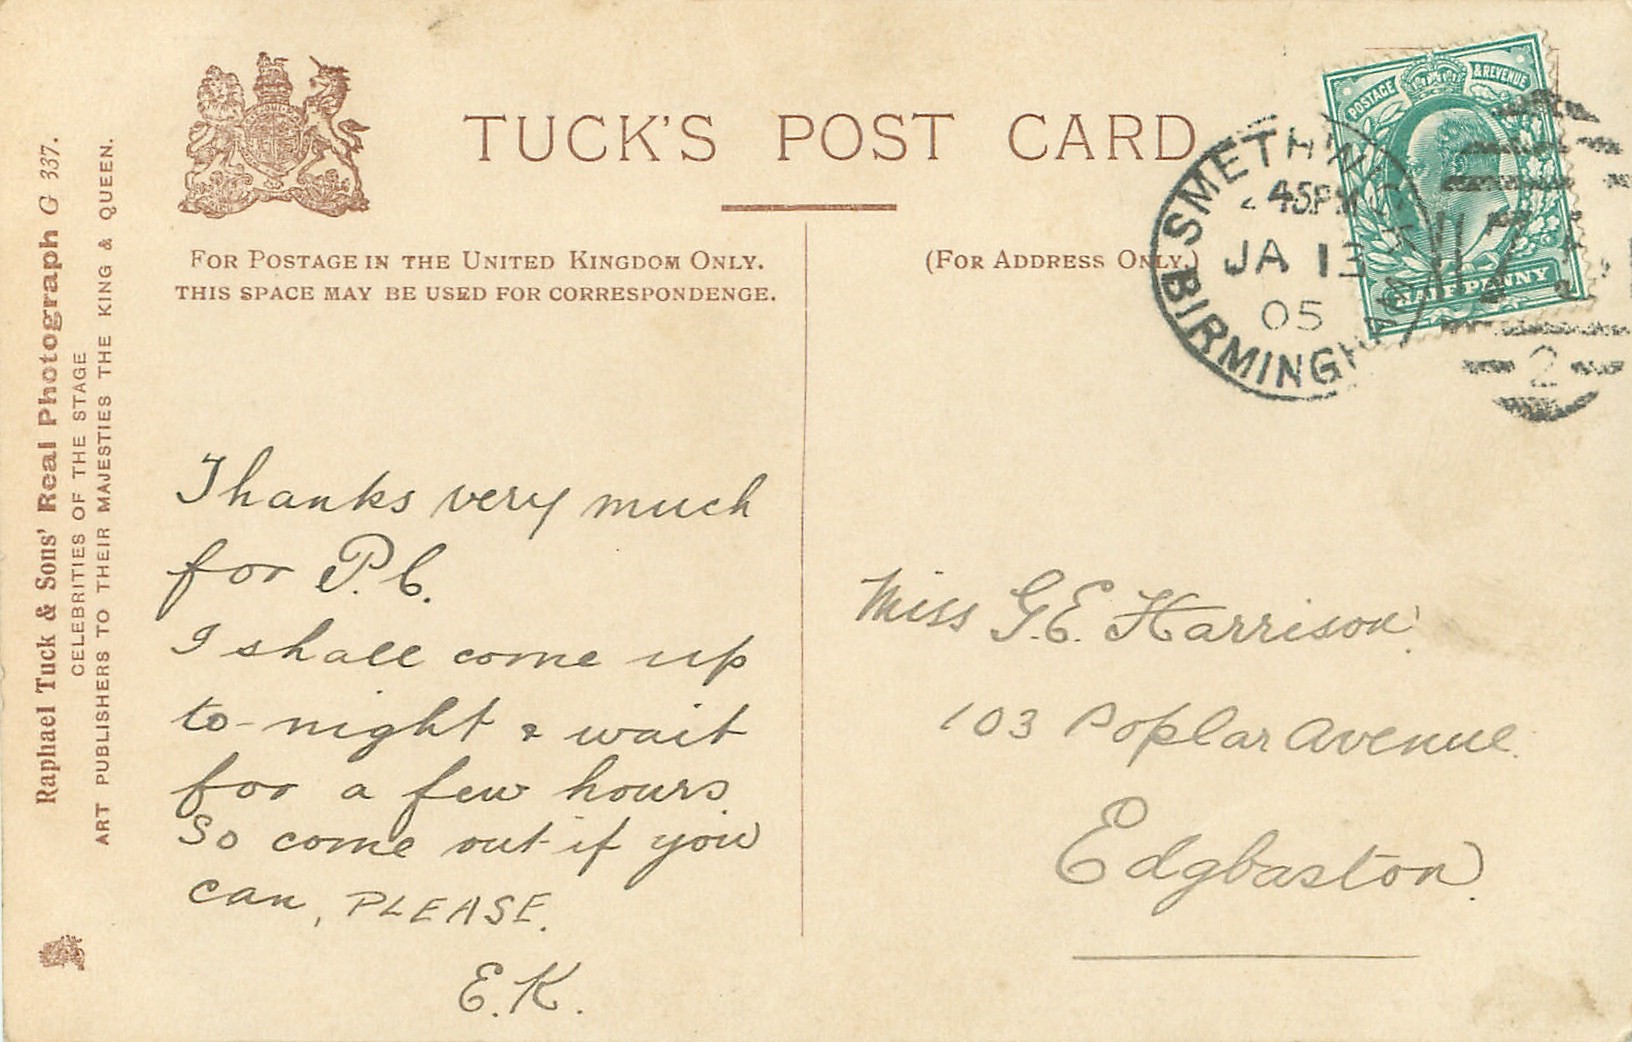 TUCK'S POST CARD
FOR POSTAGE IN THE UNITED KINGDOM ONLY.
THIS SPACE MAY BE USED FOR CORRESPONDENCE.
(FOR ADDRESS ONLY.)
Raphael Tuck & Sons' Real Photograph G 337.
CELEBRITIES OF THE STAGE
ART PUBLISHERS TO THEIR MAJESTIES THE KING & QUEEN.
POSTAGE & REVENUE
HALFPENNY
SMETHWICK
45PM
JA 13
05
BIRMINGHAM
2
Thanks very much
for P.C.
I shall come up
to-night & wait
for a few hours.
So come out if you
can, PLEASE.
E.K.
Miss G.E. Harrison.
103 Poplar Avenue.
Edgbaston.